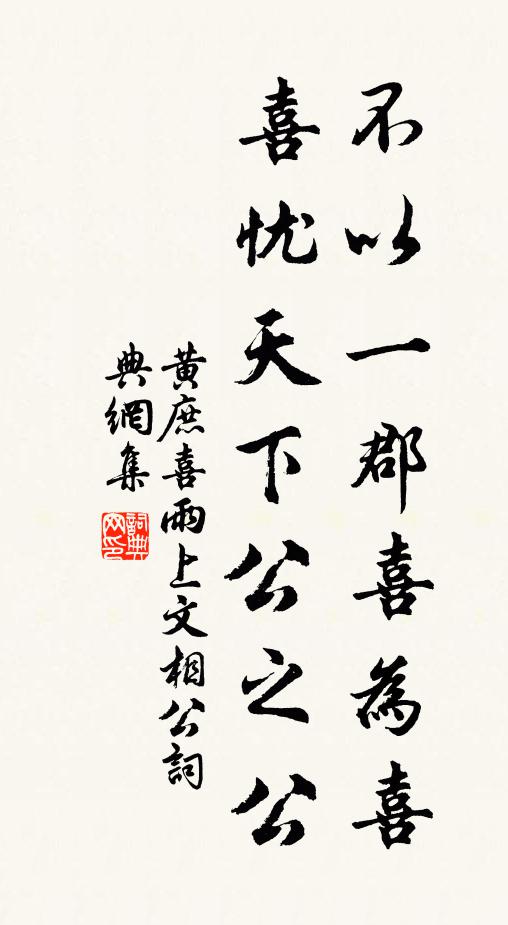 不以一郡喜為喜
喜忧天下公之公
黃庶喜雨上文相公詞
典網集
詞典網印